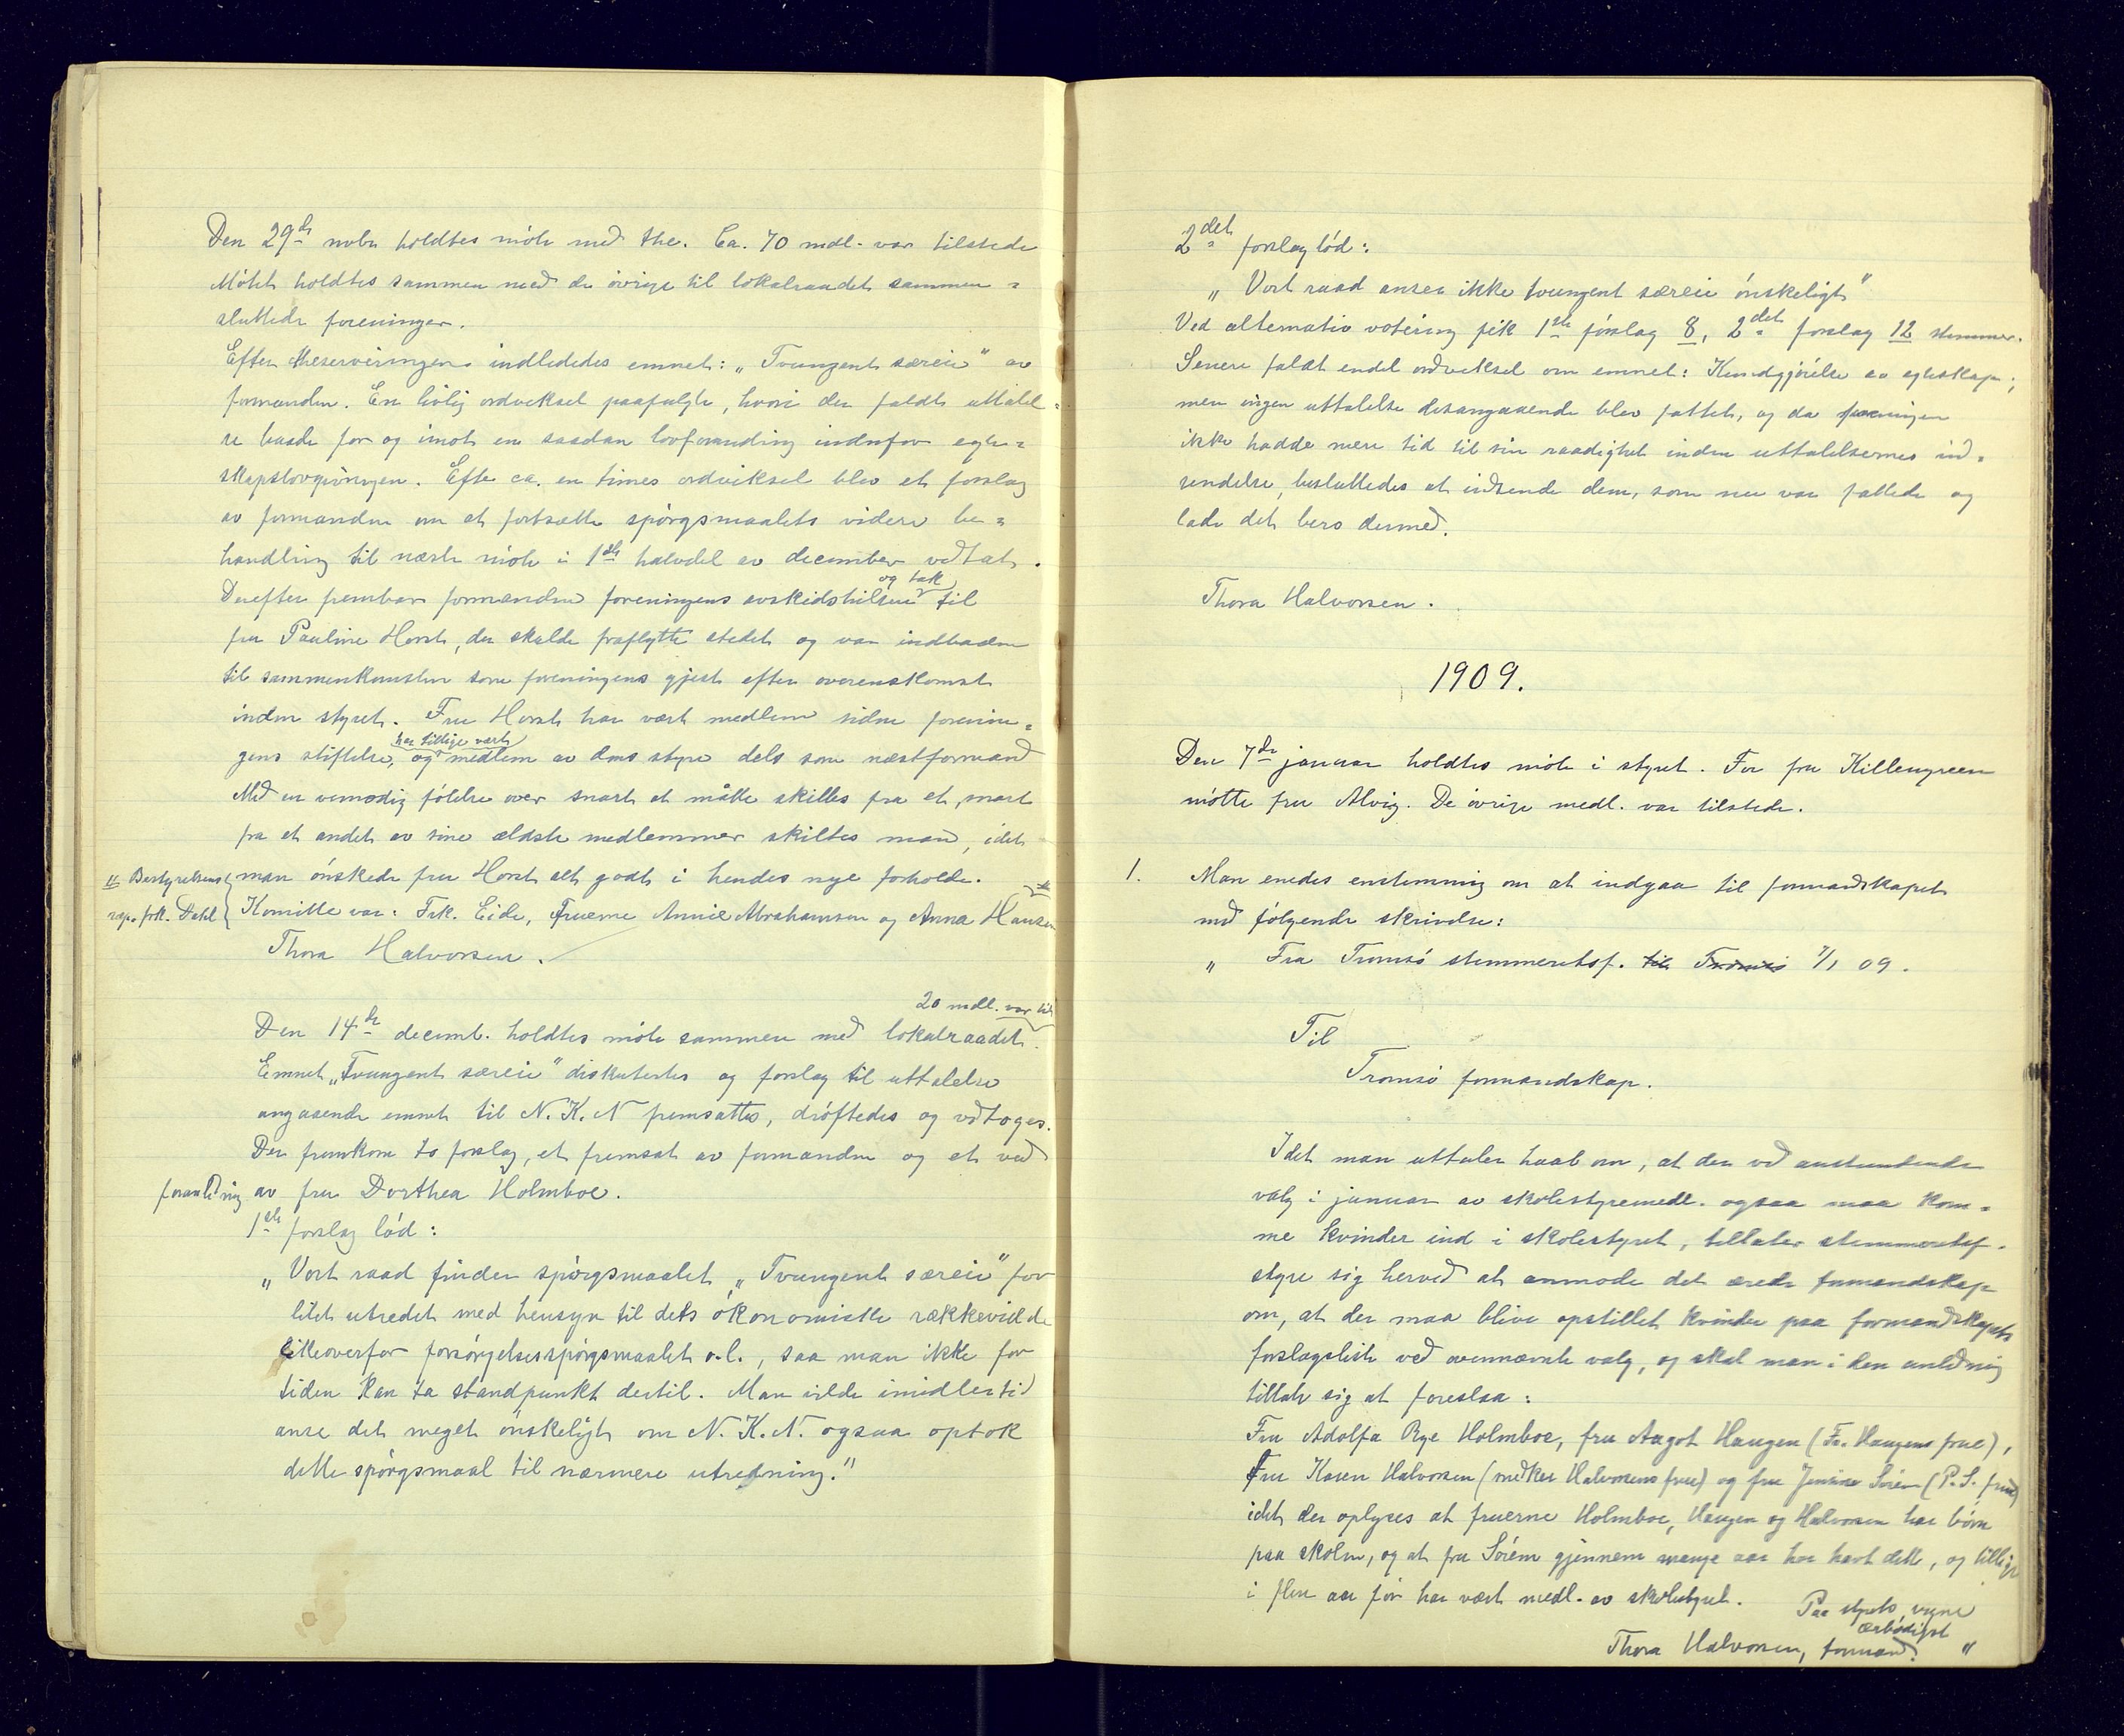 Den 29de novbr holdtes möte med the. Ca. 70 medl. var tilstede
Mötet holdtes sammen med de övrige til lokalraadet sammen-
sluttede foreninger.
Efter theserveringen indlededes emnet: „Tvungent særeie" av
formanden. En livlig ordveksel paafulgte, hvori der faldt uttalel-
se baade for og imot en saadan lovforandring indenfor egte-
skapslovgivningen. Efter ca. en times ordveksel blev et forslag
av formanden om at fortsætte spörgsmaalets videre be-
handling til næste möte i 1ste halvdel av december vedtat.
og tak
Derefter frembar formanden foreningens avskedshilsen til
fru Pauline Horst, der skulde fraflytte stedet og var indbuden
til sammenkomsten som foreningens gjest efter overenskomst
inden styret. Fru Horst har vært medlem siden forenin-
har tillige vært
gens stiftelse, og medlem av dens styre dels som næstformand
Med en vemodig fölelse over snart at måtte skilles fra et, snart
fra et andet av sine ældste medlemmer skiltes man, idet
man önskede fru Horst alt godt i hendes nye forholde.
Bestyrelsens
rep. frk. Dahl
Komitte var: Frk. Eide, Fruerne Annie Abrahamsen og Anna Hansen
Thora Halvorsen.
20 medl. var til
Den 14de decemb. holdtes möte sammen med lokalraadet.
Emnet „Tvungent særeie" diskutertes og forslag til uttalelse
angaaende emnet til N.K.N fremsattes, dröftedes og vedtoges.
Der fremkom to forslag, et fremsat av formanden og et ved
foranledning av fru Dorthea Holmboe.
1ste forslag löd:
„Vort raad finder spörgsmaalet „Tvungent særeie" for
litet utredet med hensyn til dets ökonomiske rækkevidde
likeoverfor forsörgelsesspörgsmaalet o.l., saa man ikke for
tiden kan ta standpunkt dertil. Man vilde imidlertid
anse det meget önskeligt om N.K.N. ogsaa optok
dette spörgsmaal til nærmere utredning."
2det forslag löd:
„Vort raad anser ikke tvungent særeie önskeligt"
Ved alternativ votering fik 1ste förslag 8, 2det forslag 12 stemmer.
Senere faldt endel ordveksel om emnet: Kundgjörelse av egteskap;
men ingen uttalelse desangaaende blev fattet, og da foreningen
ikke hadde mere tid til sin raadighet inden uttalelsernes ind-
sendelse, besluttedes at indsende dem, som nu var fattede og
lade det bero dermed.
Thora Halvorsen.
1909.
Den 7de januar holdtes möte i styret. For fru Killengreen
mötte fru Alvig. De övrige medl. var tilstede.
1. Man enedes enstemmig om at indgaa til formandskapet
med fölgende skrivelse:
„ Fra Tromsö stemmeretsf. til Tromsö 7/1 09.
Til
Tromsö formandskap.
Idet man uttaler haab om, at der ved anstundende
valg i januar av skolestyremedl. ogsaa maa kom-
me kvinder ind i skolestyret, tillater stemmeretsf.
styre sig herved at anmode det ærede formandskap
om, at der maa blive opstillet kvinder paa formandskapets
forslagsliste ved ovennævnte valg, og skal man i den anledning
tillate sig at foreslaa:
Fru Adolfa Rye Holmboe, fru Aagot Haugen (Fr. Haugens frue),
Fru Karen Halvorsen (mækler Halvorsens frue) og fru Jensine Sörem (P.S. frue)
idet der oplyses at fruerne Holmboe, Haugen og Halvorsen har börn
paa skolen, og at fru Sörem gjennem mange aar har havt dette, og tillige
i flere aar för har vært medl. av skolestyret.
Paa styrets vegne
ærbödigst
Thora Halvorsen, formand. "